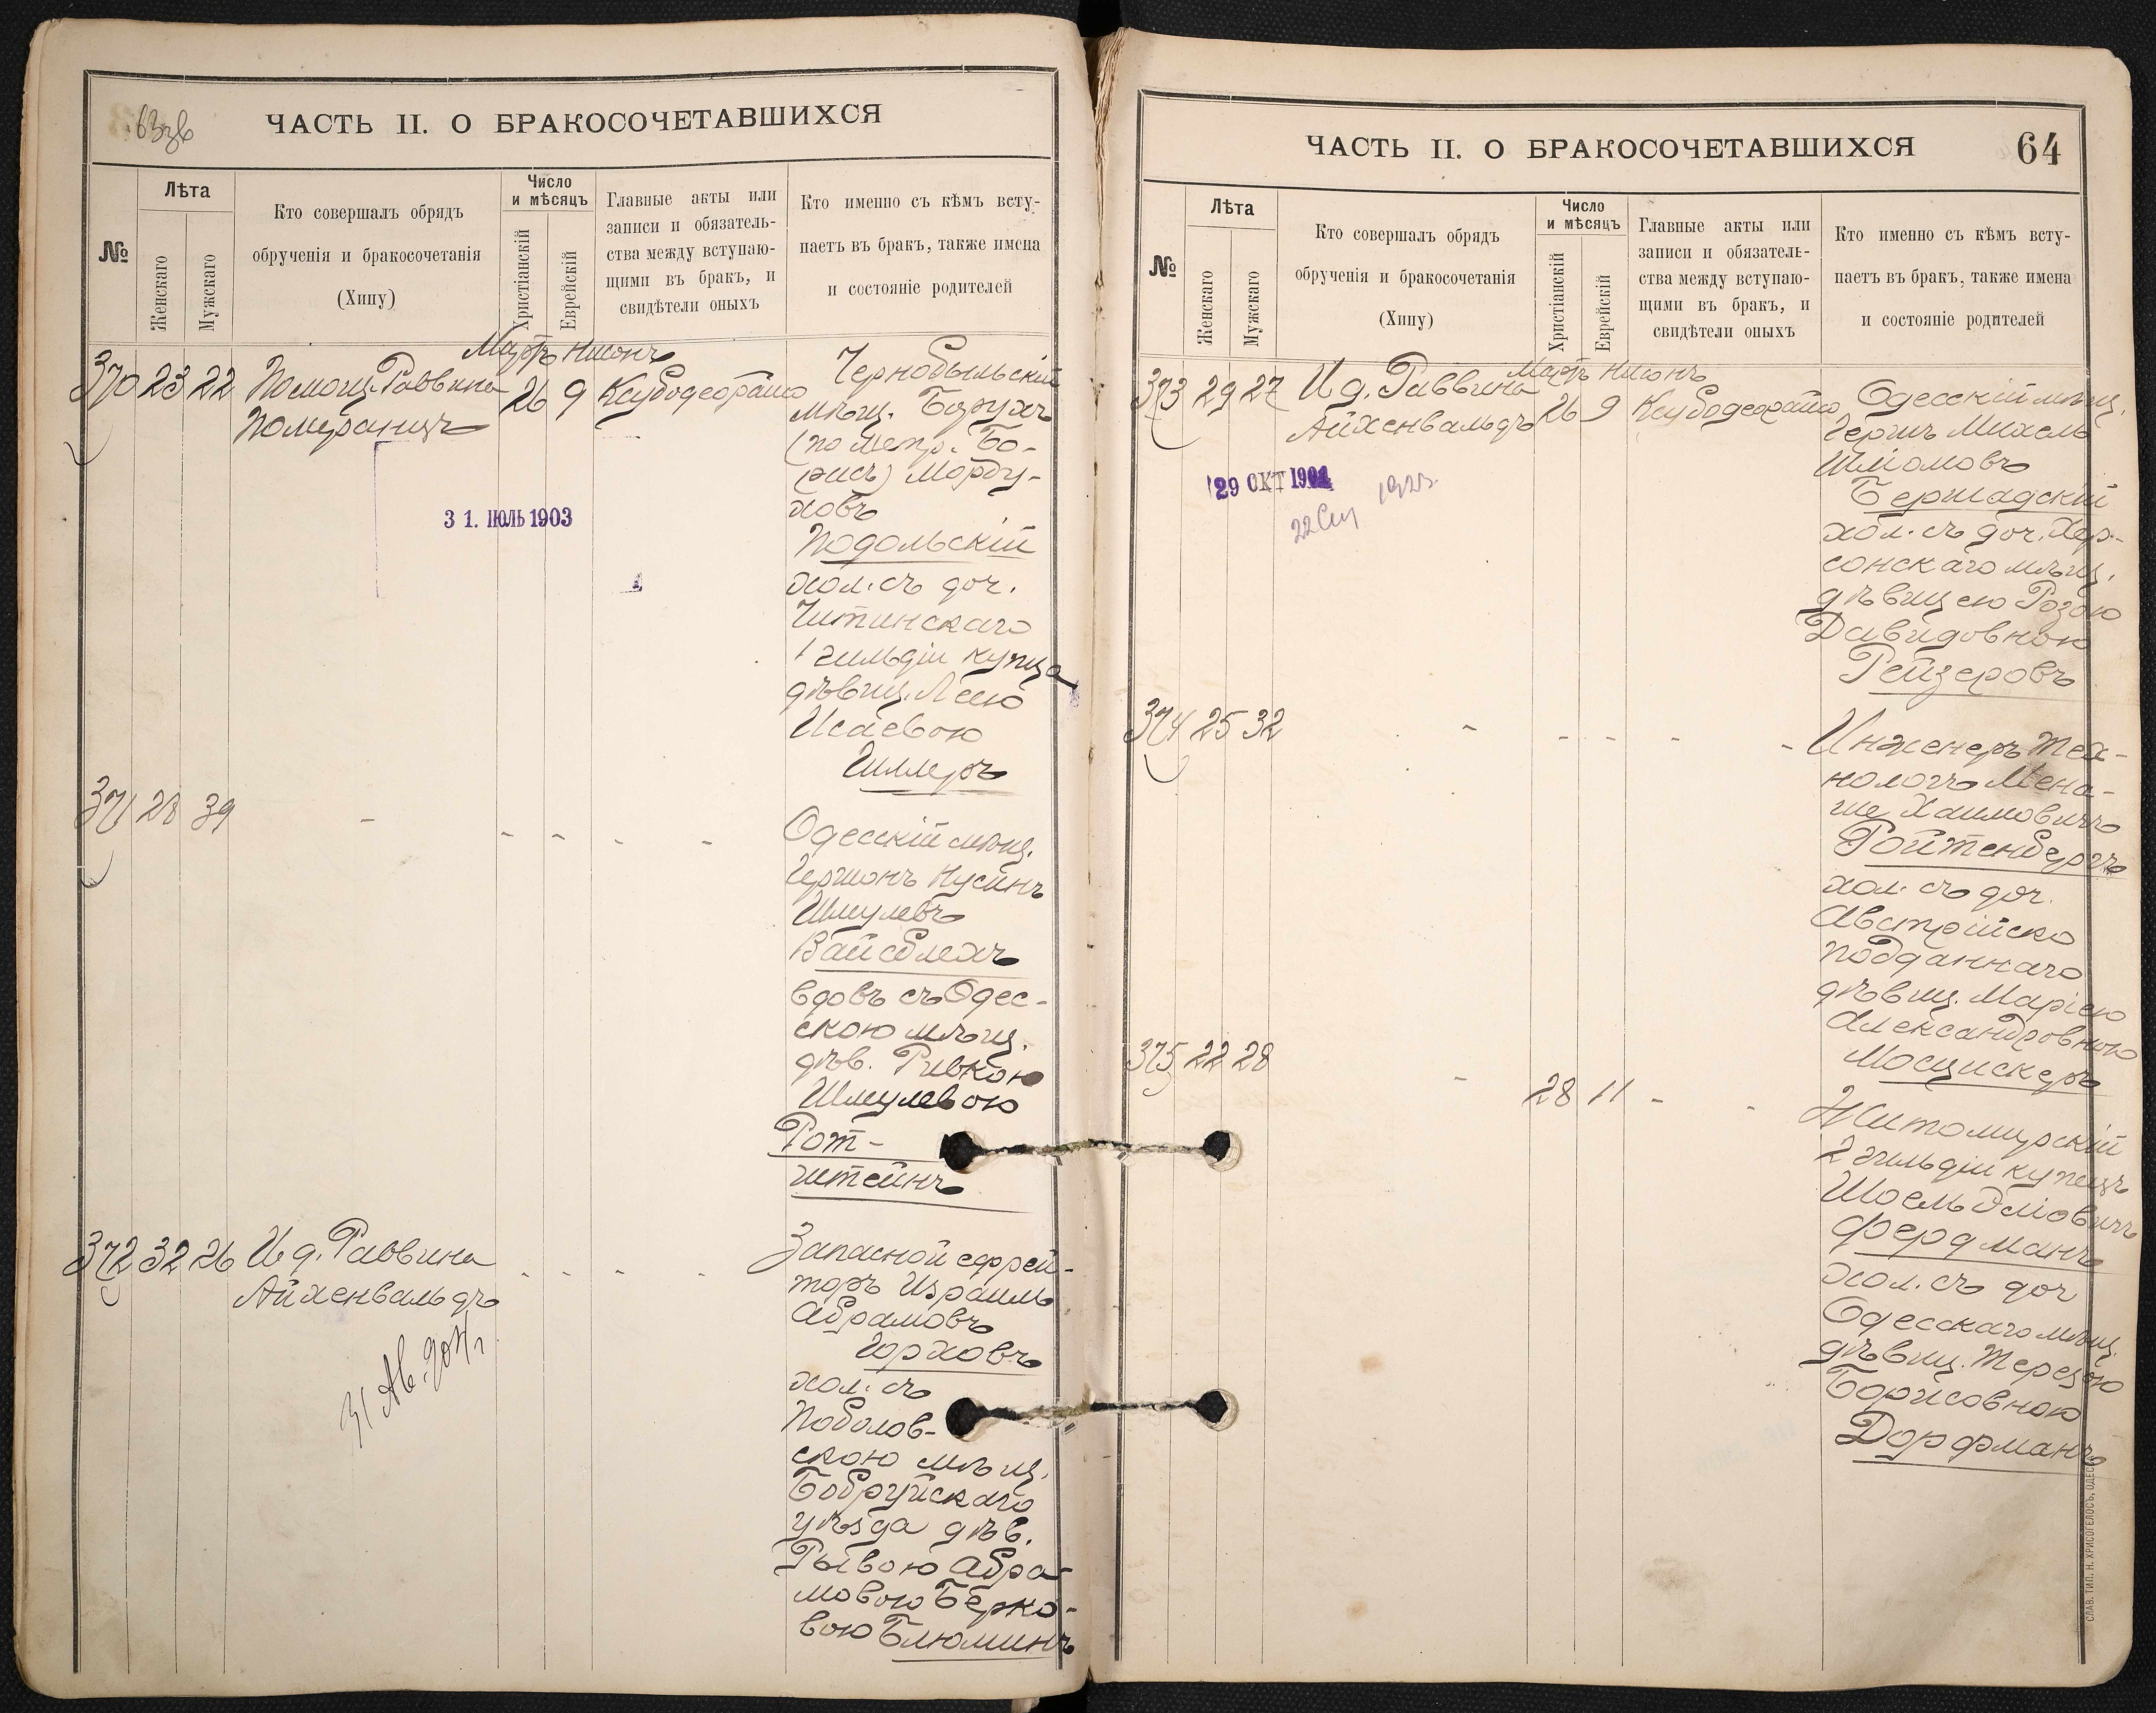 63 об
ЧАСТЬ II. О БРАКОСОЧЕТАВШИХСЯ
№
Лѣта
Женскаго
Мужскаго
Кто совершалъ обрядъ
обрученія и бракосочетанія
(Хипу)
Число
и мѣсяцъ
Христіанскій
Еврейскій
Главные акты или
записи и обязатель-
ства между вступаю-
щими въ бракъ, и
свидѣтели оныхъ
Кто именно съ кѣмъ всту-
паетъ въ бракъ, также имена
и состояніе родителей
Мартъ Нисонъ
370 23 22 Помощ. Раввина 26 9 Ксубодеорайто
Померанцъ
31. ІЮЛЬ 1903
Чернобыльскій
мѣщ. Борухъ
(по метр. Бо-
рисъ) Морду-
ховъ
Подольскій
хол. съ доч.
Читинскаго
1 гильдіи купца
дѣвиц. Леею
Исаевою
Шллеръ
371 28 39 - - - - -
Одесскій мѣщ.
Гершонъ Нусинъ
Шмулевъ
Вайсблехъ
вдовъ съ Одес-
скою мѣщ.
дѣв. Ривкою
Шмулевою
Рот-
штейнъ
372 32 26 И д. Раввина - - - -
Айхенвальдъ
31 Ав. 904 г
Запасной ефрей-
торъ Израиль
Абрамовъ
Горховъ
хол. съ
Поболов-
скою мѣщ.
Бобруйскаго
уѣзда дѣв.
Рывою Абра-
мовою Берко-
вою Блюминъ
ЧАСТЬ II. О БРАКОСОЧЕТАВШИХСЯ
64
№
Лѣта
Женскаго
Мужскаго
Кто совершалъ обрядъ
обрученія и бракосочетанія
(Хипу)
Число
и мѣсяцъ
Христіанскій
Еврейскій
Главные акты или
записи и обязатель-
ства между вступаю-
щими въ бракъ, и
свидѣтели оныхъ
Кто именно съ кѣмъ всту-
паетъ въ бракъ, также имена
и состояніе родителей
Мартъ Нисонъ
373 29 27 И д. Раввина 26 9 Ксубодеорайто
Айхенвальдъ
29 ОКТ 1904
22 Сен 1923
Одесскій мѣщ.
Гершъ Михель
Шліомовъ
Бершадскій
хол. съ доч. Хер-
сонскаго мѣщ.
дѣвицею Розою
Давидовною
Рейзеровъ
374 25 32 - - - - -
Инженеръ Тех-
нологъ Мена-
ше Хаимовичъ
Ройтенбергъ
хол. съ доч.
Австрійско
подданнаго
дѣвиц. Маріею
Александровною
Мосцискеръ
375 22 28 - 28 11 - -
Житомирскій
2 гильдіи купецъ
Шоель Эліовичъ
Фердманъ
хол. съ доч
Одесскаго мѣщ.
дѣвиц. Терезою
Борисовною
Дорфманъ
СЛАВ. ТИП. Н. ХРИСОГЕЛОСЪ, ОДЕС